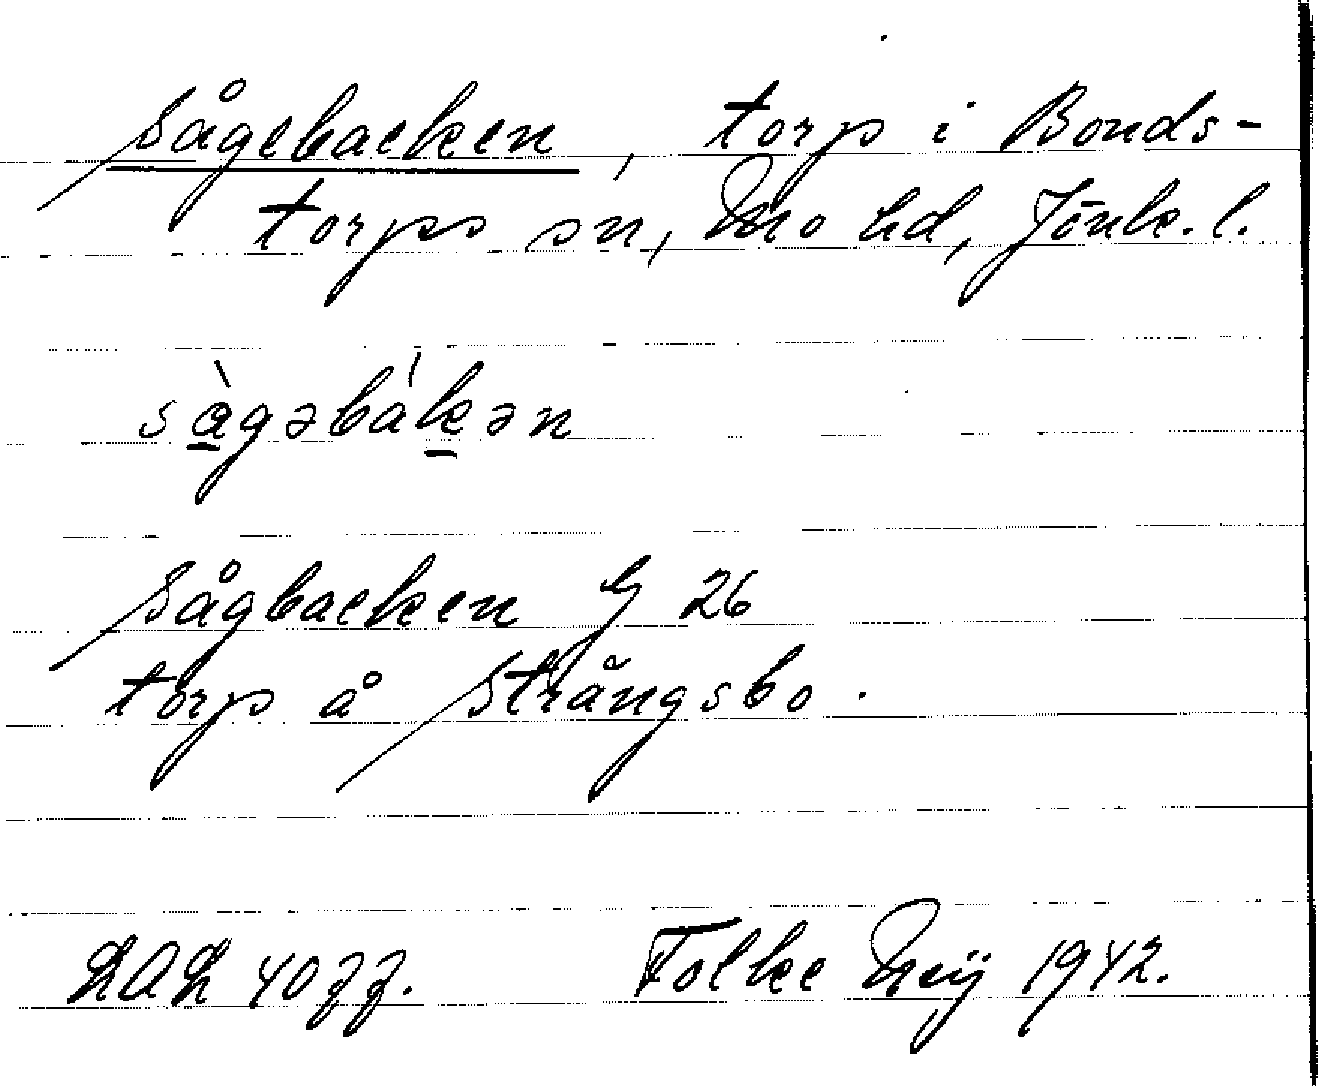 Sågebacken, torp i Bonds-
torps sn, Mo hd, Jönk. l.
sàgəbákən
Sågbacken G 26
torp å Strångsbo.
LAL 4077. Folke Meÿ 1942.